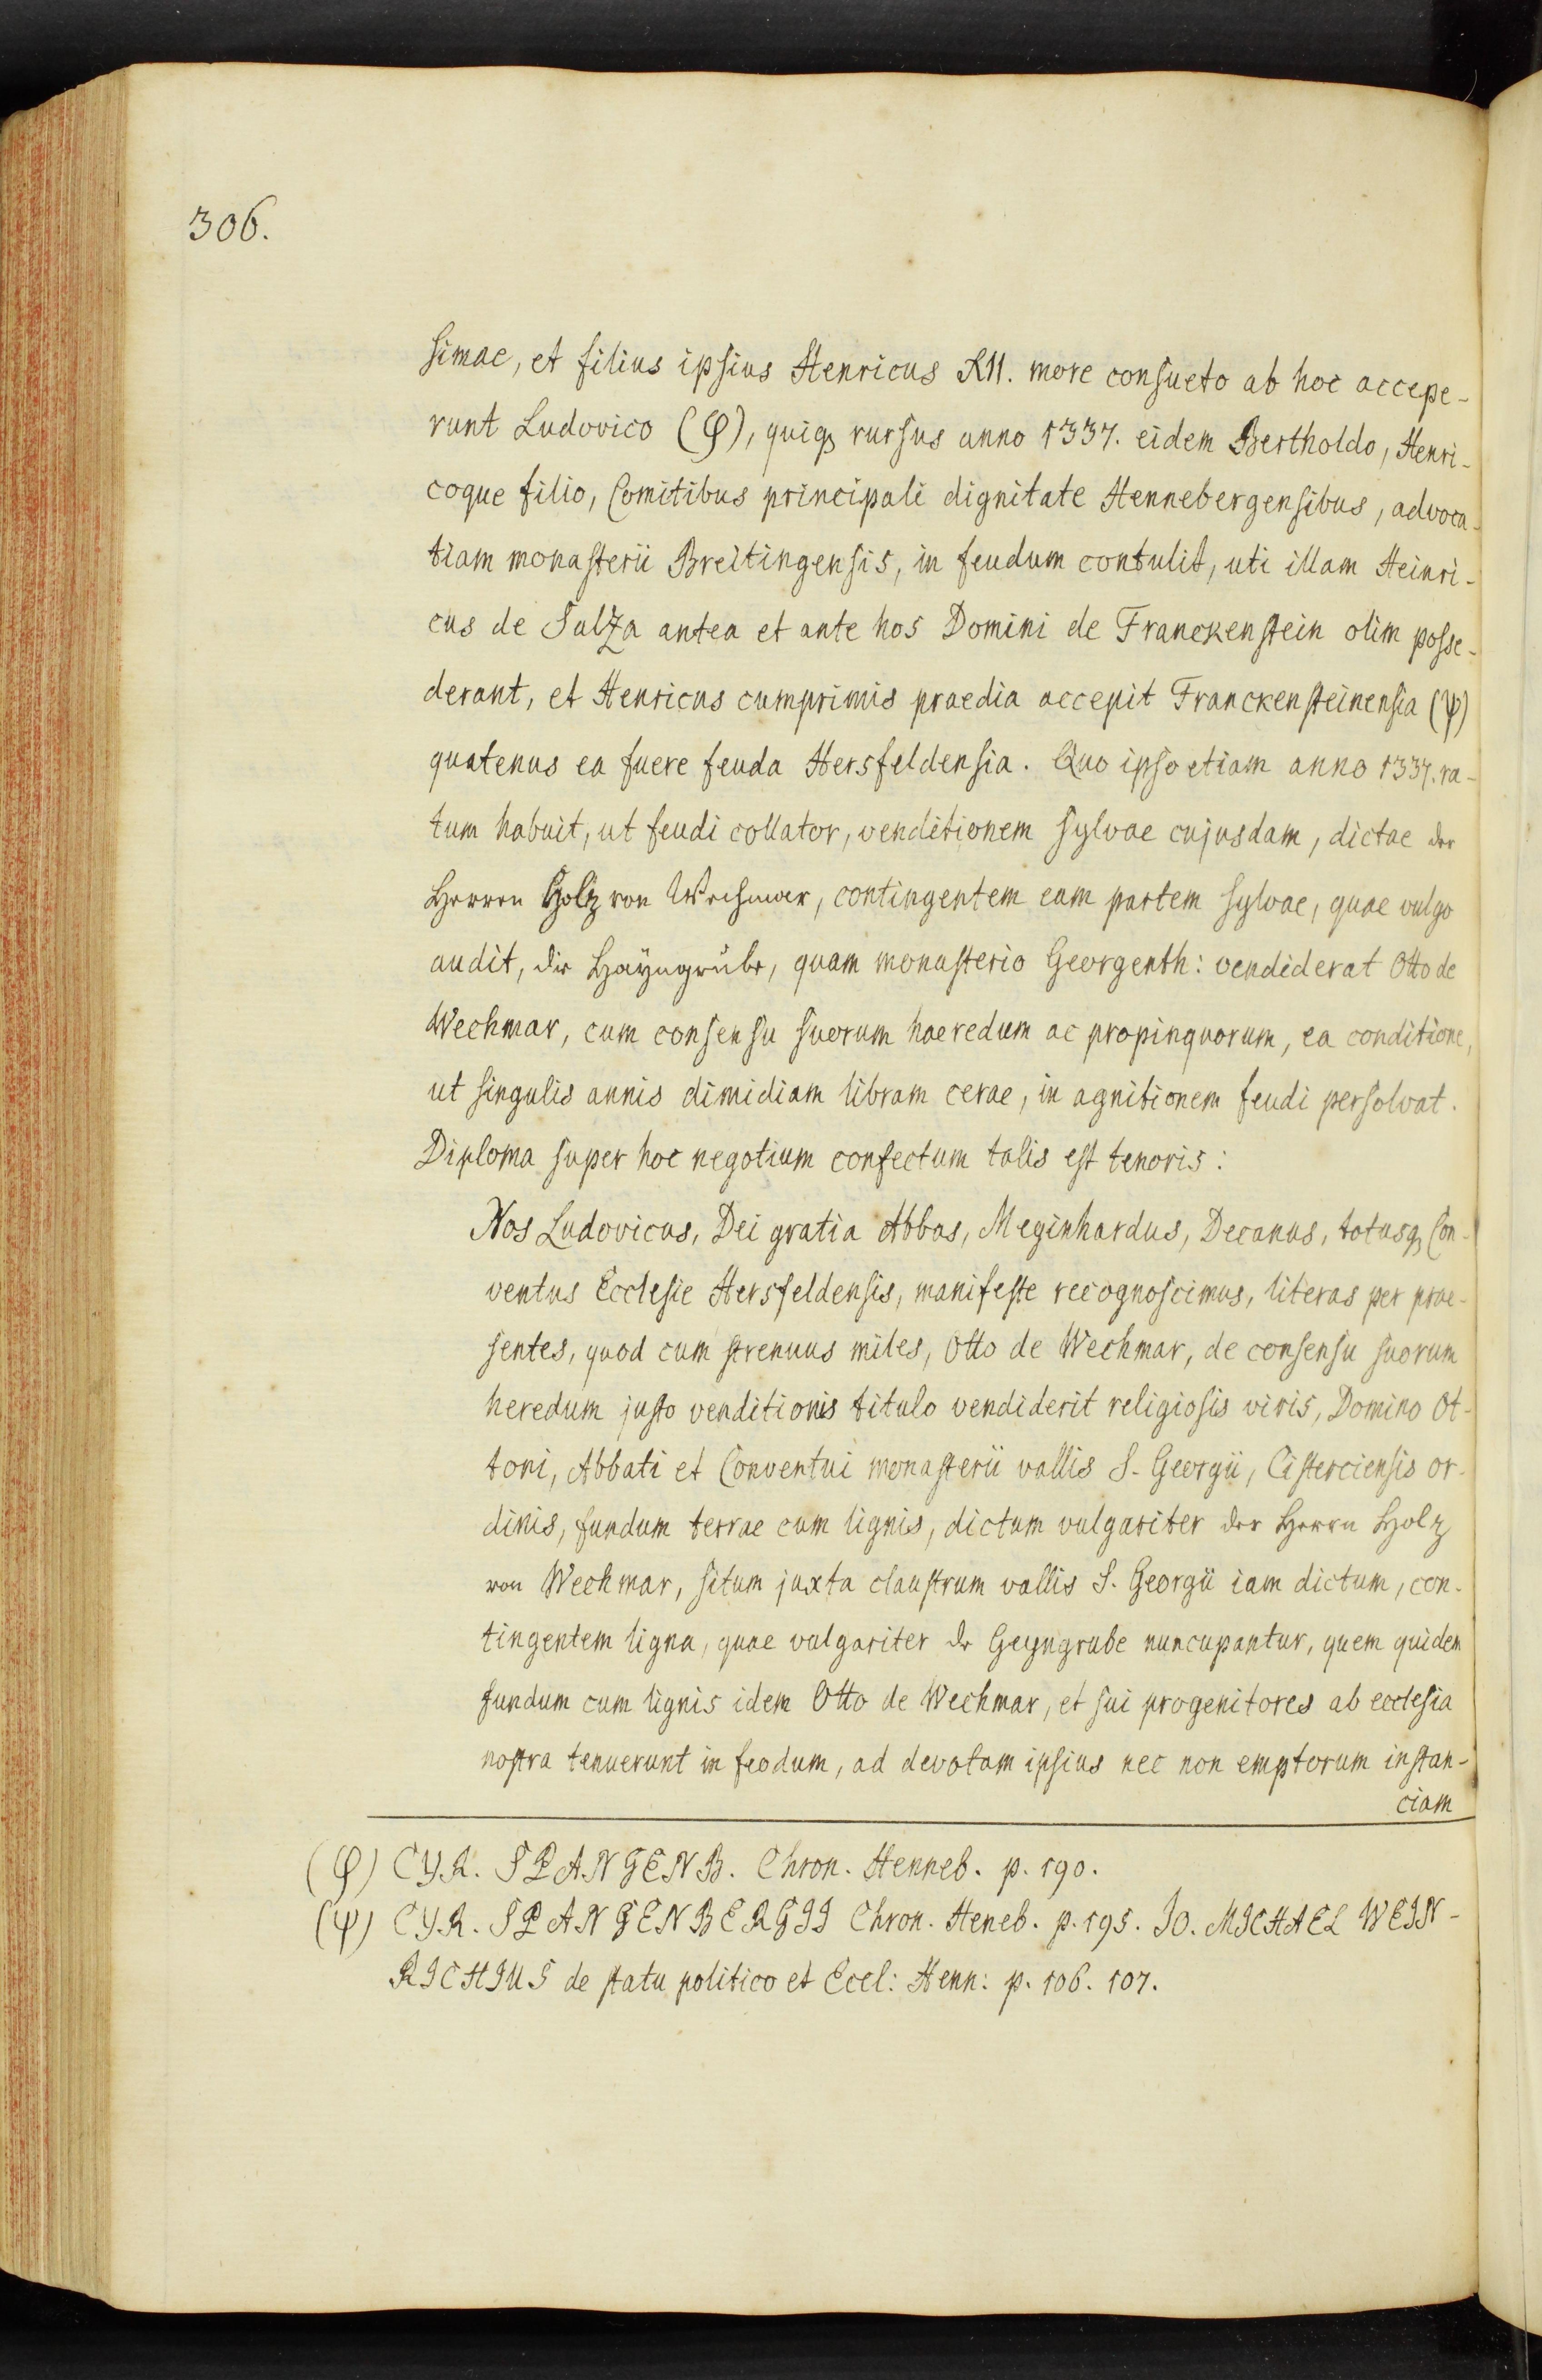 306.
simae, et filius ipsius Henricus XII. more consueto ab hoc accepe-
runt Ludovico (φ), quiq₃ rursus anno 1337. eidem Bertholdo, Henri-
coque filio, Comitibus principali dignitate Hennebergensibus, advoca-
tiam monasterii Breitingensis, in feudum contulit, uti illam Heinri-
cus de Salza antea et ante hos Domini de Franckenstein olim posse-
derant, et Henricus cumprimis praedia accepit Franckensteinensia (ψ)
quatenus ea fuere feuda Hersfeldensia. Quo ipso etiam anno 1337. ra-
tum habuit, ut feudi collator, venditionem sylvae cujusdam, dictae der
Herren Holz von Wechmar, contingentem eam partem sylvae, quae vulgo
audit, die Haÿngrube, quam monasterio Georgenth: vendiderat Otto de
Wechmar, cum consensu suorum haeredum ac propinquorum, ea conditione,
ut singulis annis dimidiam libram cerae, in agnitionem feudi persolvat.
Diploma super hoc negotium confectum talis est tenoris:
Nos Ludovicus, Dei gratia Abbas, Meginhardus, Decanus, totusq₃ Con-
ventus Ecclesie Hersfeldensis, manifeste recognoscimus, literas per prae-
sentes, quod cum strenuus miles, Otto de Wechmar, de consensu suorum
heredum justo venditionis titulo vendiderit religiosis viris, Domino Ot-
toni, Abbati et Conventui monasterii vallis S. Georgii, Cisterciensis or-
dinis, fundum terrae cum lignis, dictum vulgariter der Herrn Holz
von Wechmar, situm juxta claustrum vallis S. Georgii iam dictum, con-
tingentem ligna, quae vulgariter de Geyngrube nuncupantur, quem quidem
fundum cum lignis idem Otto de Wechmar, et sui progenitores ab ecclesia
nostra tenuerunt in feodum, ad devotam ipsius nec non emptorum instan-
ciam
(φ) CYR. SPANGENB. Chron. Henneb. p. 190.
(ψ) CYR. SPANGENBERGII Chron. Heneb. p. 195. IO. MICHAEL WEIN-
RICHIUS de statu politico et Eccl: Henn: p. 106. 107.